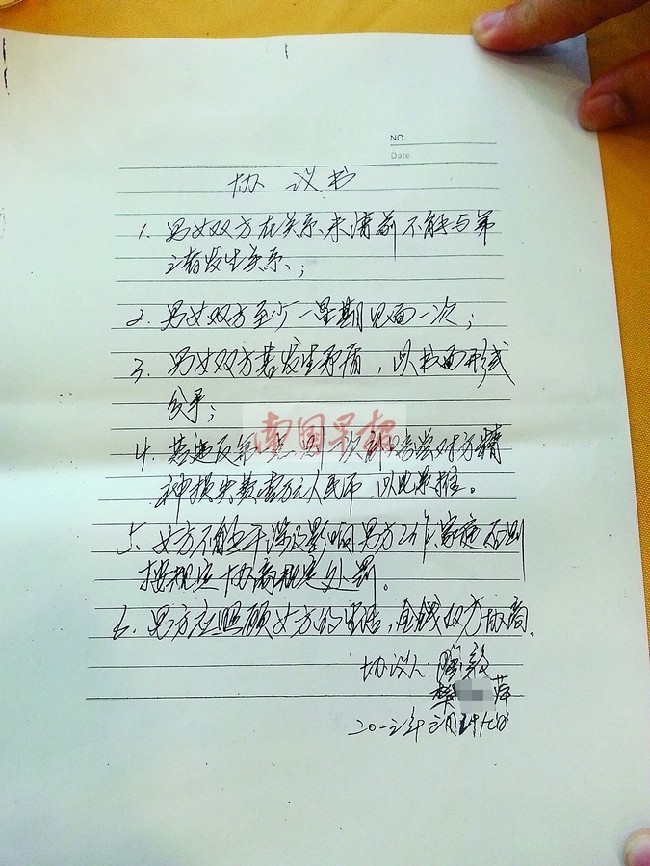 NO.
Date.
协 议 书
1. 男女双方在关系未清前不能与第
三者发生关系;
2. 男女双方至少一星期见面一次;
3. 男女双方若发生矛盾,以书面形式
分手;
南国早报
4. 若违反第一点,则一次 赔尝对方精
神损失费壹万元人民币,以此类推。
5. 女方不能干涉及影响男方工作、家庭否则
按规定协商裁定处罚。
6. 男方应照顾女方的生活,金钱双方协商。
协议人
萍
二0一二年